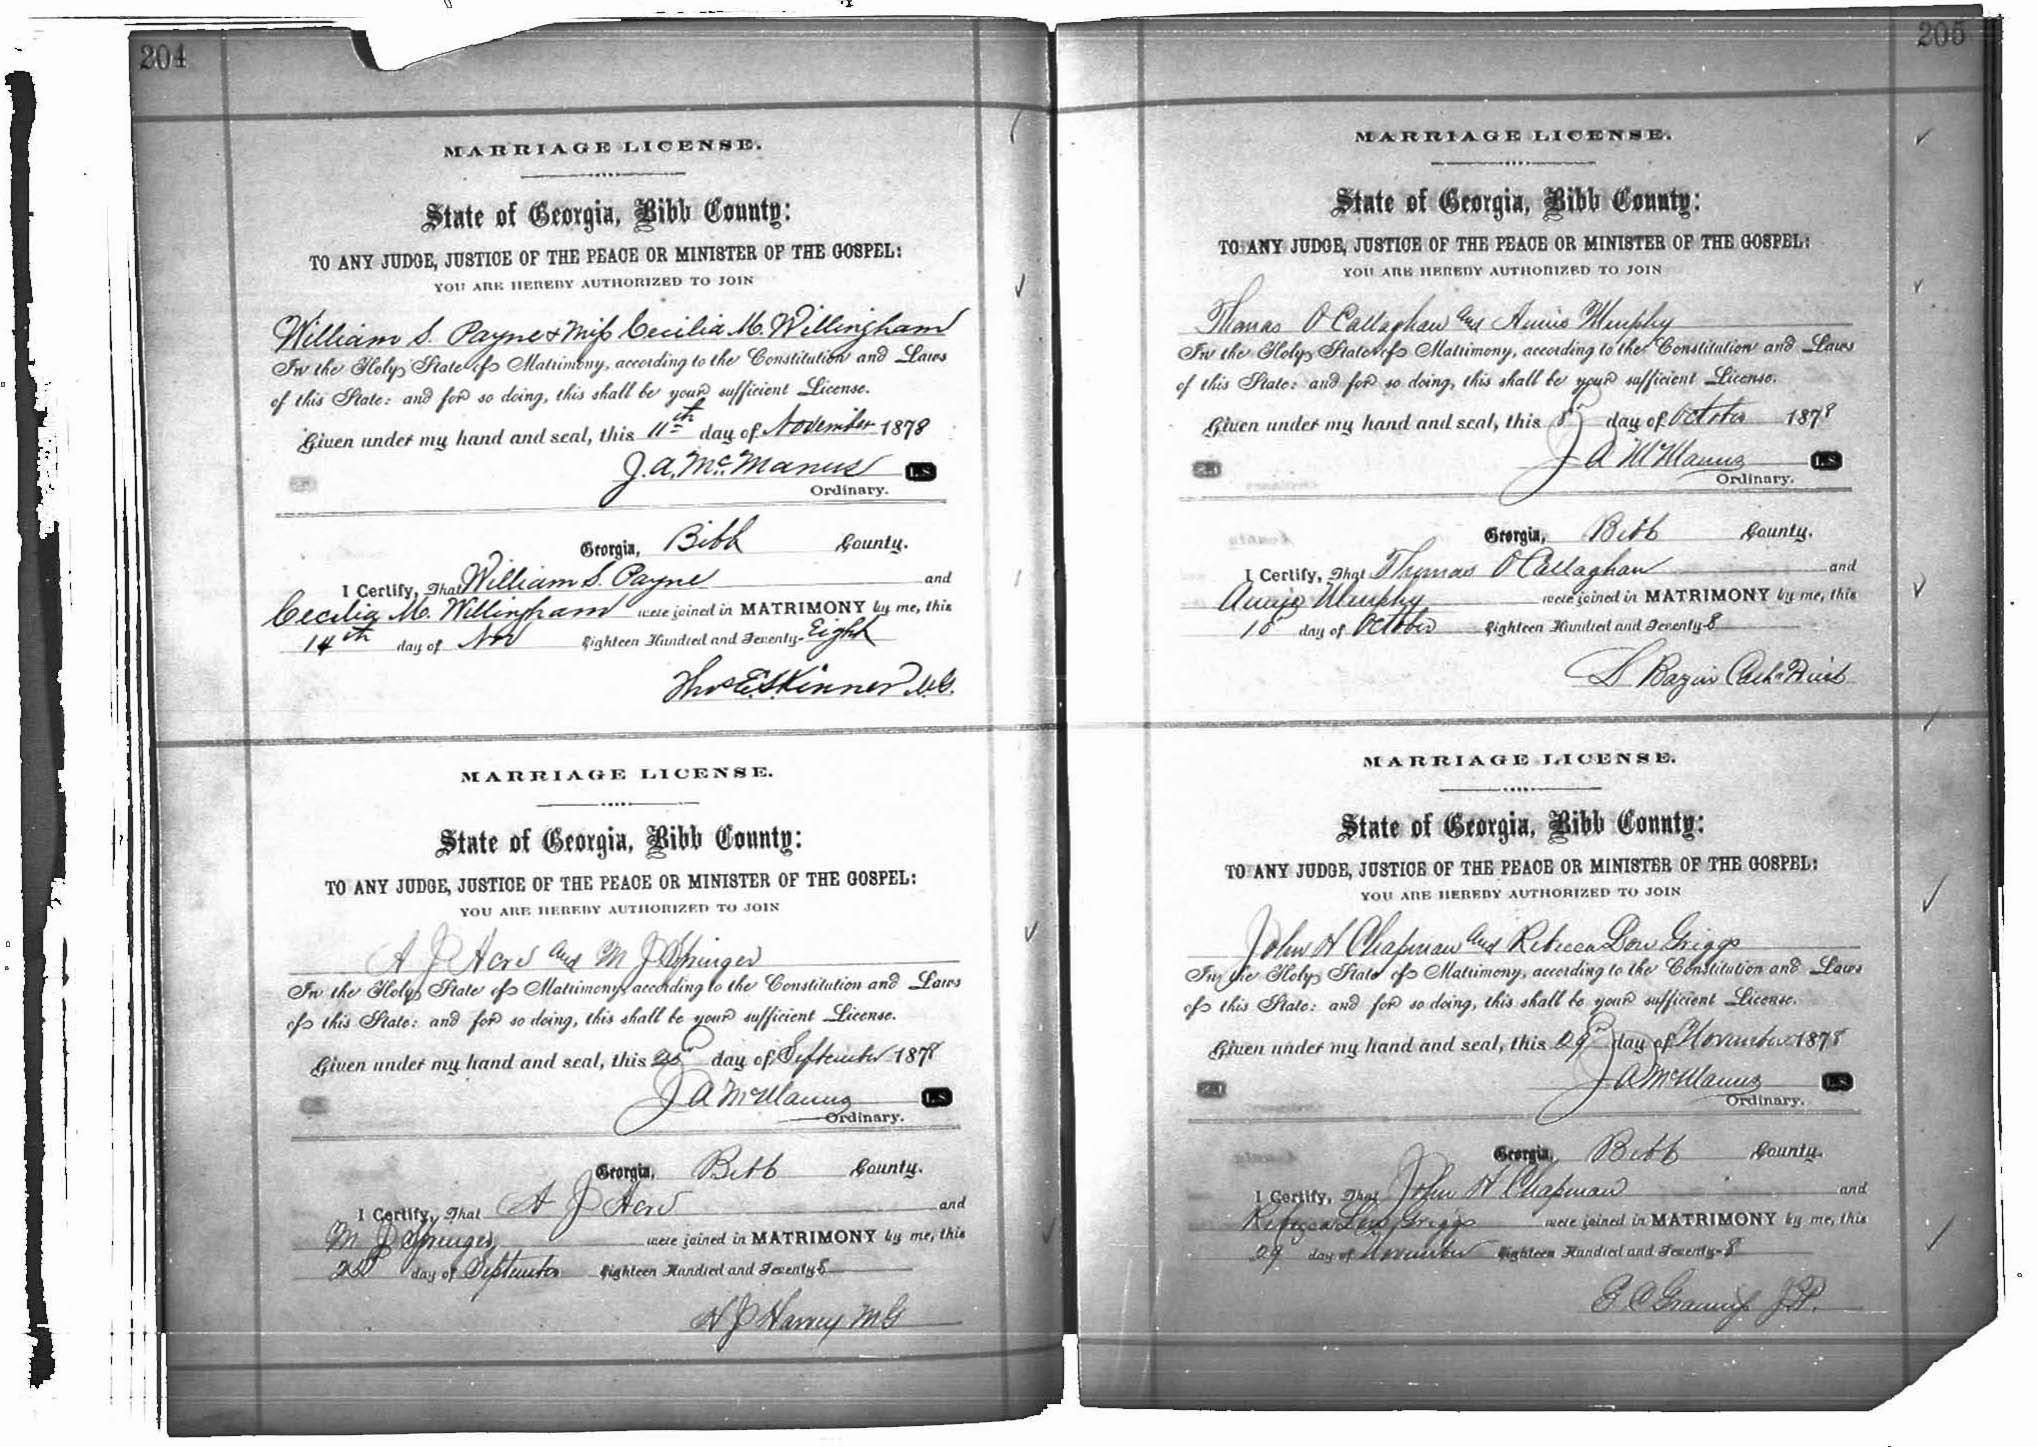 204
MARRIAGE LICENSE.
State of Georgia, Bibb County:
TO ANY JUDGE, JUSTICE OF THE PEACE OR MINISTER OF THE GOSPEL:
YOU ARE HEREBY AUTHORIZED TO JOIN
William S. Payne & Miss Cecilia M. Willingham
In the Holy State of Matrimony, according to the Constitution and Laws
of this State: and for so doing, this shall be your sufficient License.
Given under my hand and seal, this 11th day of November 1878
J. A. McManus L.S.
Ordinary.
Georgia, Bibb County.
I Certify, That William S. Payne and
Cecilia M. Willingham were joined in MATRIMONY by me, this
14th day of Nov Eighteen Hundred and Seventy-Eight
Thos E. Skinner M.G.
MARRIAGE LICENSE.
State of Georgia, Bibb County:
TO ANY JUDGE, JUSTICE OF THE PEACE OR MINISTER OF THE GOSPEL:
YOU ARE HEREBY AUTHORIZED TO JOIN
A J Acre and M J Springer
In the Holy State of Matrimony, according to the Constitution and Laws
of this State: and for so doing, this shall be your sufficient License.
Given under my hand and seal, this day of September 1878
J A McManus L.S.
Ordinary.
Georgia, Bibb County.
I Certify, That A J Acre and
M J Springer were joined in MATRIMONY by me, this
day of September Eighteen Hundred and Seventy-8
H J Harvey MG
205
MARRIAGE LICENSE.
State of Georgia, Bibb County:
TO ANY JUDGE, JUSTICE OF THE PEACE OR MINISTER OF THE GOSPEL:
YOU ARE HEREBY AUTHORIZED TO JOIN
Thomas O Callaghan and Annie Murphy
In the Holy State of Matrimony, according to the Constitution and Laws
of this State: and for so doing, this shall be your sufficient License.
Given under my hand and seal, this 8 day of October 1878
J A McManus L.S.
Ordinary.
Georgia, Bibb County.
I Certify, That Thomas O Callaghan and
Annie Murphy were joined in MATRIMONY by me, this
10 day of October Eighteen Hundred and Seventy-8
Bazin Cath Priest
MARRIAGE LICENSE.
State of Georgia, Bibb County:
TO ANY JUDGE, JUSTICE OF THE PEACE OR MINISTER OF THE GOSPEL:
YOU ARE HEREBY AUTHORIZED TO JOIN
John H Chapman and Rebecca Griggs
In the Holy State of Matrimony, according to the Constitution and Laws
of this State: and for so doing, this shall be your sufficient License.
Given under my hand and seal, this 29 day of November 1878
J A McManus L.S.
Ordinary.
Georgia, Bibb County.
I Certify, That John H Chapman and
Rebecca Griggs were joined in MATRIMONY by me, this
29 day of November Eighteen Hundred and Seventy-8
J.P.